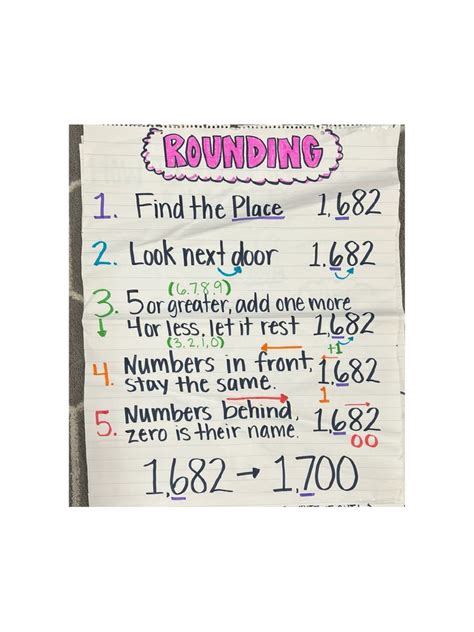 ROUNDING
1. Find the Place 1,682
2. Look next door 1,682
(6,7,8,9)
3. 5 or greater, add one more
4 or less, let it rest 1,682
(3,2,1,0) +1
4. Numbers in front, 1,682
stay the same. 1
5. Numbers behind, 1,682
zero is their name. 00
1,682 → 1,700